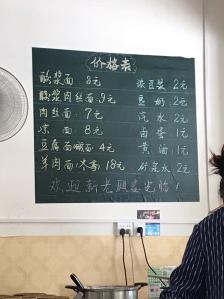 价格表
酸浆面：8元
酸浆肉丝面9元
肉面：7元
凉面：8元
豆腐面碱面4元
羊肉面（冬季）18元
浓豆浆 2元
豆奶 2元
汽水 2元
卤蛋 1元
黄油 1元
矿泉水 2元
欢迎新老顾客光临！